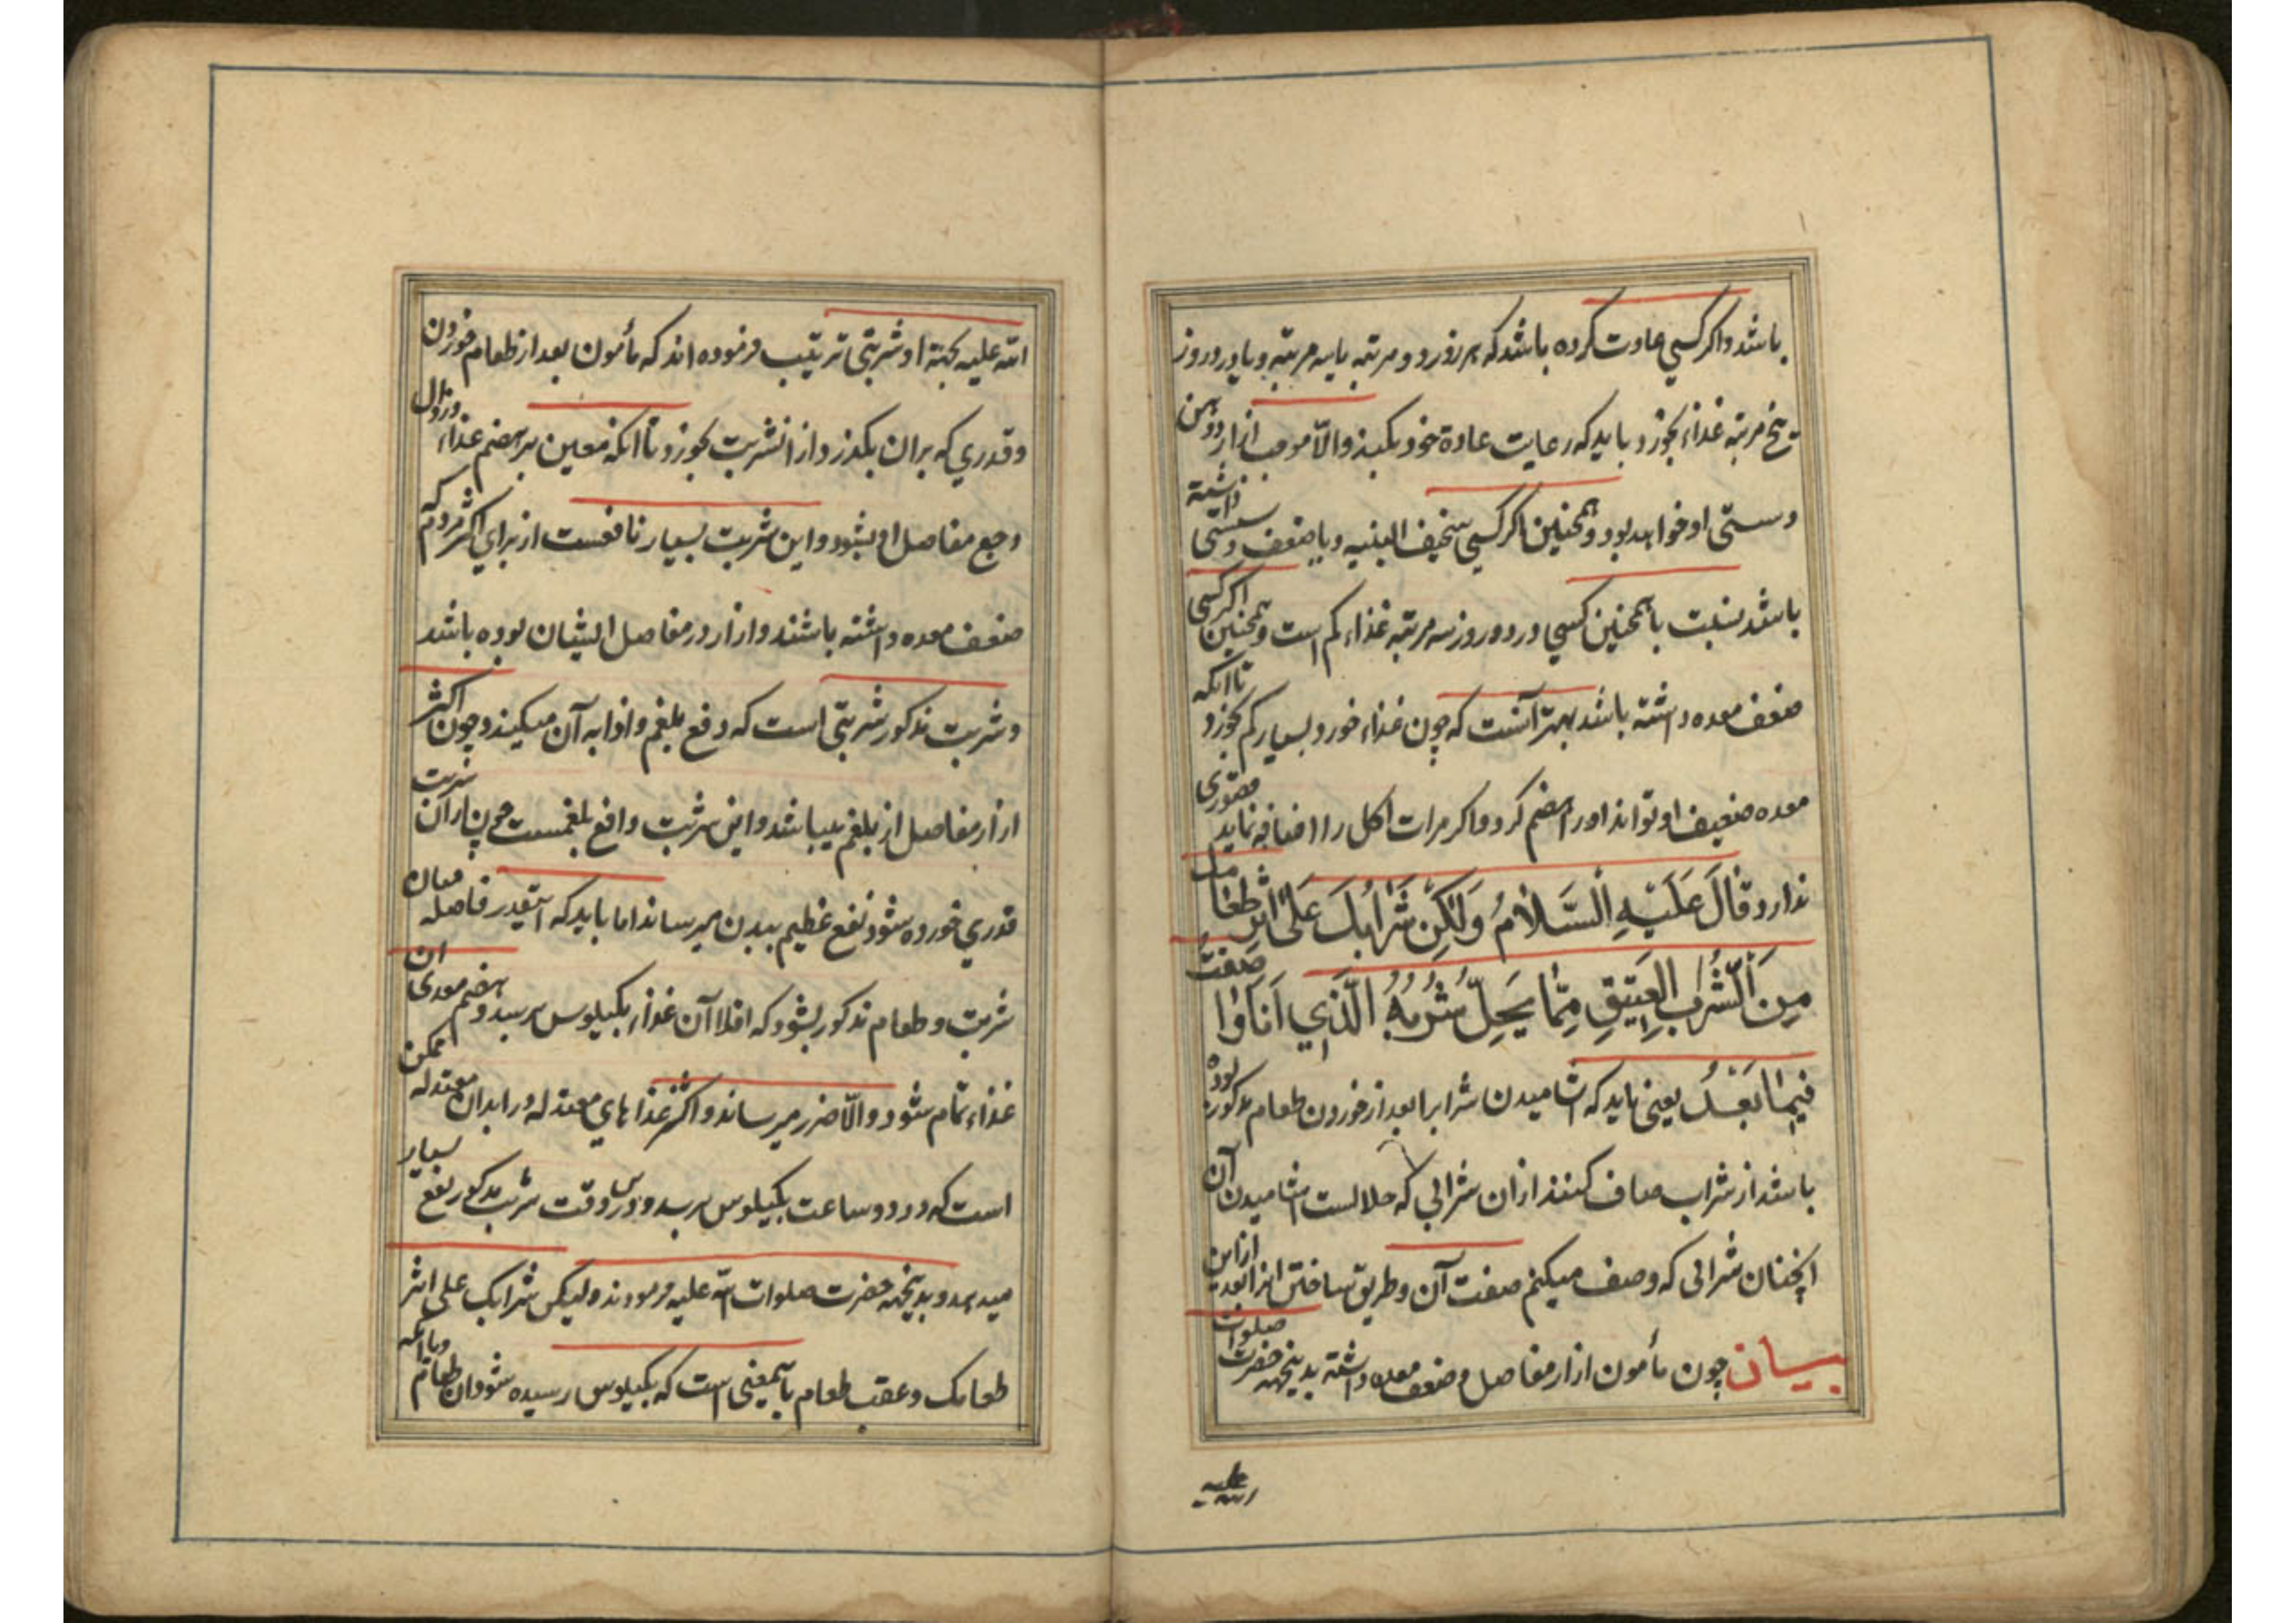 باشد واکر کسی عادت کرده باشد که هر روز دو مرتبه یا سه مرتبه و یا در دو روز
پنج مرتبه غذاء بخورد باید که رعایت عادة خود بکند والّا موجب ازار و وهن
وسستی او خواهد بود و همچنین اکر کسی سخیف البنیه و یا ضعف و سستی داشته
باشد نسبت باهمچنین کسی در دو روز سه مرتبه غذاء کم است و همچنین اکر کسی
ضعف معده داشته باشد بهتر آنست که چون غذاء خورد بسیار کم بخورد تا انکه
معده ضعیف او تواند اورا هضم کرد و اکر مرات اکل را اضافه نماید قصوری
ندارد قَالَ عَلَیْهِ السَّلامُ وَلٰکِنْ شَرَابُكَ عَلیٰ اَثَرِ طَعَامِكَ
مِنَ الشَّرَابِ العَتِیقِ مِمَّا یَحِلُّ شُرْبُهُ الَّذِي اَنَا وَاصِفُ صِفَتَهُ
فِیمَا بَعْدُ یعنی باید که اشامیدن شرابرا بعد از خوردن طعام مذکور بوده
باشد از شراب صاف کهنه از ان شرابی که حلالست اشامیدن آن
انچنان شرابی که وصف میکنم صفت آن و طریق ساختن انرا بعد از این
بیان چون مأمون ازار مفاصل و ضعف معده داشته بدینجهه حضرت صلوات
الله علیه
الله علیه بجهة او شربتی ترتیب فرموده اند که مأمون بعد از طعام خوردن
و قدری که بران بکذرد از انشربت بخورد تا انکه معین بر هضم غذاء و زوال
وجع مفاصل او بشود و این شربت بسیار نافعست از برای اکثر مردم که
ضعف معده داشته باشند و ازار در مفاصل ایشان بوده باشد
و شربت مذکور شربتی است که دفع بلغم و اذابه آن میکند و چون اکثر
ازار مفاصل از بلغم میباشد و این شربت دافع بلغمست چون از آن شربت
قدری خورده شود نفع عظیم ببدن میرساند اما باید که اینقدر فاصله میان
شربت و طعام مذکور بشود که اقلا آن غذاء بکیلوس برسد و هضم معدی ان
غذاء تمام شود والّا ضرر میرساند و اکثر غذاهای معتدله در ابدان معتدله ممکن
است که در دو ساعت بکیلوس برسد و درین وقت شربت مذکور نفع بسیار
میدهد و بدینجهه حضرت صلوات الله علیه فرمودند ولیکن شرابك علی اثر
طعامك و عقب طعام بآنمعنی است که بکیلوس رسیده شود ان طعام و یا انکه